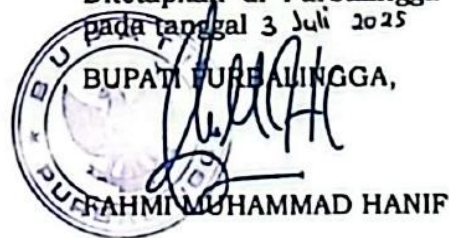 pada tanggal 3 Juli 2025
BUPATI PURBALINGGA,
BUPATI
FAHMI MUHAMMAD HANIF